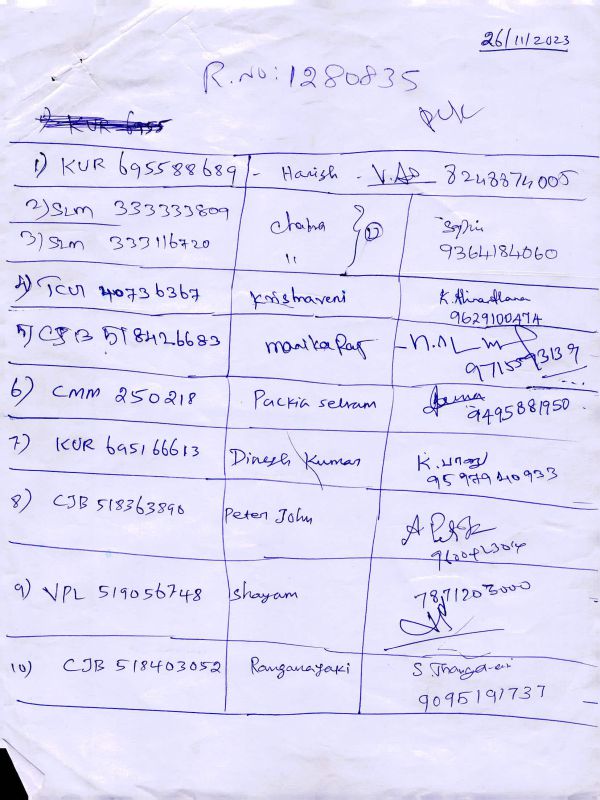 26/11/2023
R.No: 1280835
1) KUR 695588689 - Harish - 8248374005
2) SLM 333333809
3) SLM 333116720
"
9364184060
4) TCUT 40736367 Krishnaveni
9629100474
5) CJB 518426683 Manika Raj
6) CMM 250218 Packia selvam
9495881950
7) KUR 695166613 Dinesh Kumar K.
9597940933
8) CJB 518363890 Peter John
9) VPL 519056748 Shayam 7871203000
10) CJB 518403052 Ranganayaki
9095191737